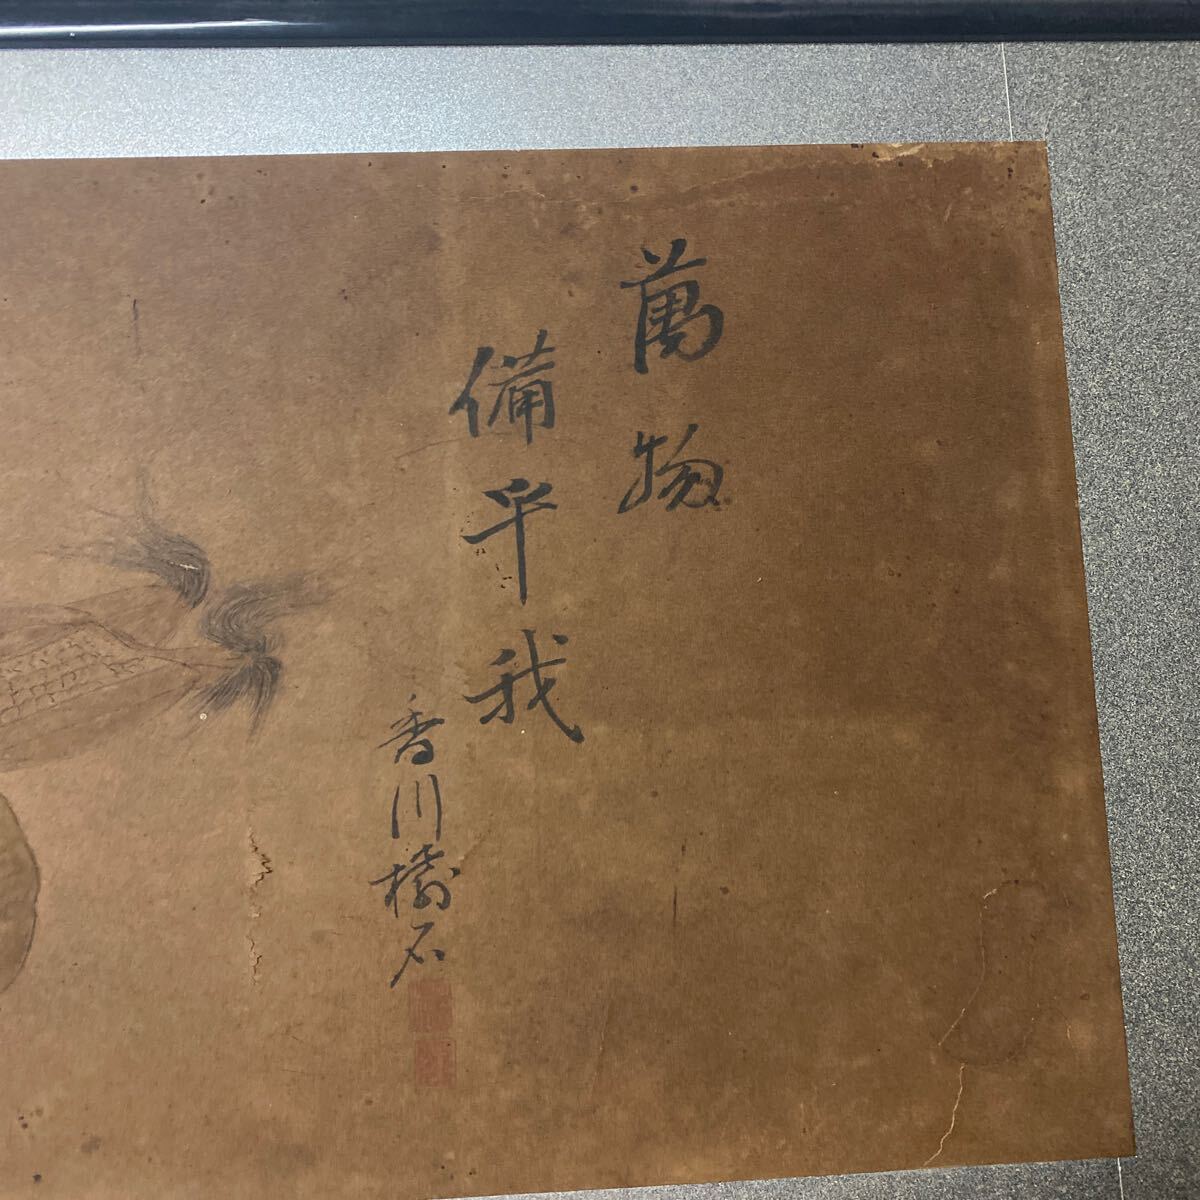 萬物
備乎我
香川檎石